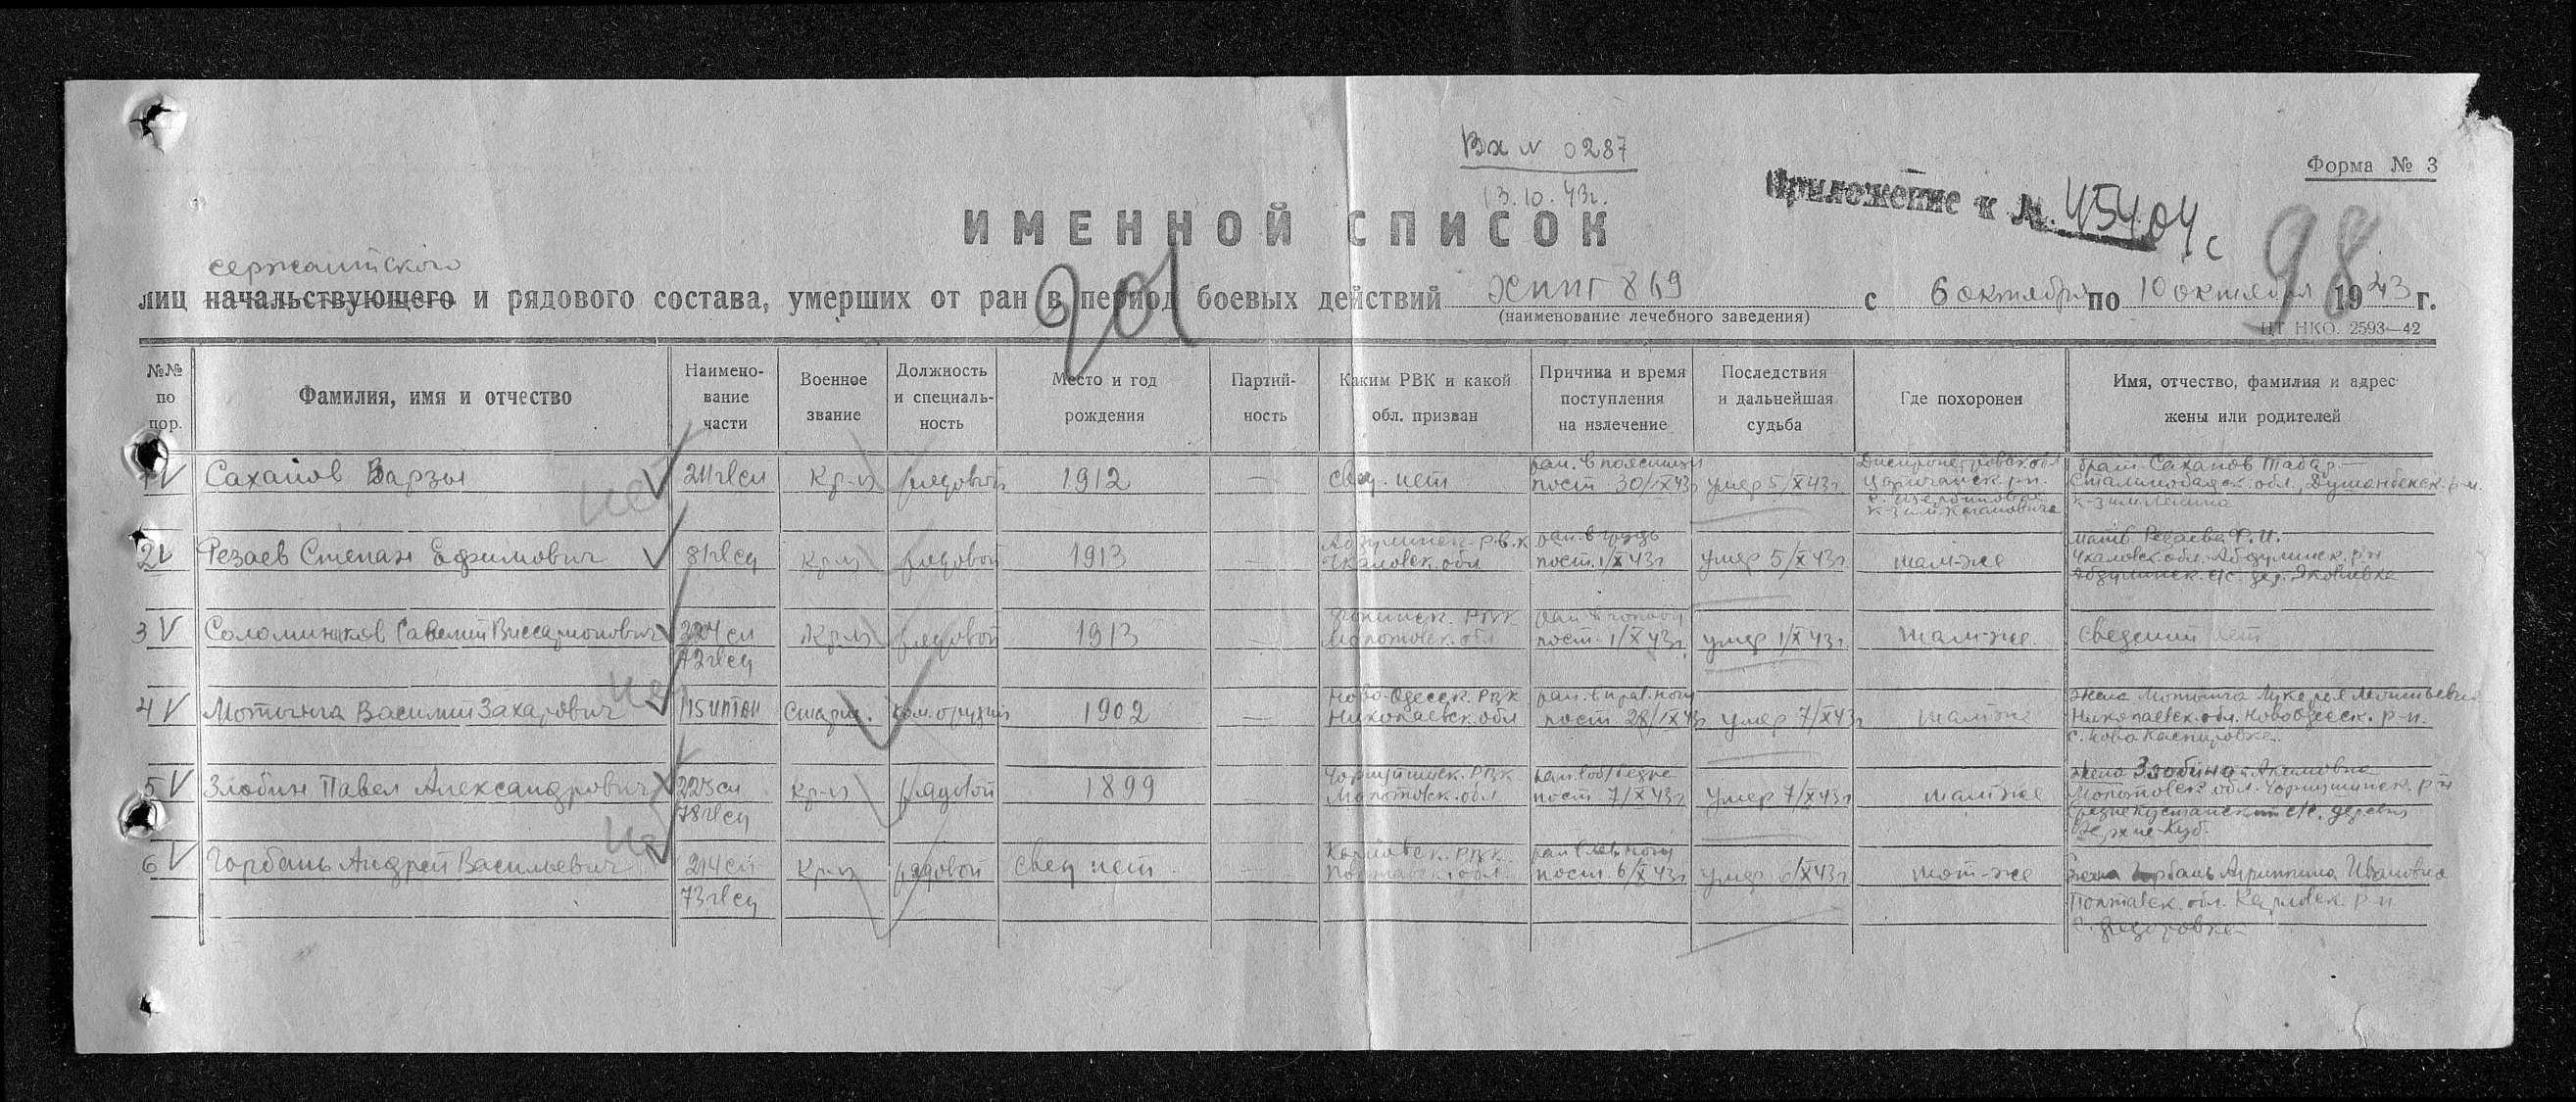 Вх № 0287
13.10.43г.
Форма № 3
Приложение к №. 45404с
ИМЕННОЙ СПИСОК
98
сержантского
лиц начальствующего и рядового состава, умерших от ран в период боевых действий ХППГ 869 с 6 октября по 10 октября 1943 г.
(наименование лечебного заведения)
ЦТ НКО. 2593—42
№№ по пор.
Фамилия, имя и отчество
Наимено- вание части
Военное звание
Должность и специаль- ность
Место и год рождения
Партий- ность
Каким РВК и какой обл. призван
Причина и время поступления на излечение
Последствия и дальнейшая судьба
Где похоронен
Имя, отчество, фамилия и адрес жены или родителей
1 V Сахапов Варзы нет 211 гв сп Кр-ц рядовой 1912 — свед. нет
ран. в поясницу
пост 30/IX 43г умер 5/X 43г.
Днепропетровск. обл
Царичанск. р-н.
к-з им. Кагановича
брат Сахапов Табар —
Сталинобадск. обл., Душанбенск. р-н.
к-з им. Ленина
2 V Резаев Степан Ефимович 81 гв сд Кр-ц рядовой 1913 —
Абдулинск. Р.В.К
Чкаловск. обл
ран. в грудь
пост. 1/X 43г умер 5/X 43г там-же
мать Резаева Ф. И.
Чкаловск. обл. Абдулинск. р-н
Абдулинск. с/с. дер. Яковлевка
3 V Соломинков Савелий Виссарионович 224 сп Кр-ц рядовой 1913 —
72 гв сд
РВК
Молотовск. обл
пост. 1/X 43г. умер 1/X 43г. там-же. сведений нет
4 V Мотынга Василий Захарович нет 115 иптоп Старш. ком. орудия 1902 —
Ново-Одесск. РВК
Николаевск. обл
ран. в прав. ногу
пост 28/IX 43г умер 7/X 43г там же
жена Мотынга Лукерья Леонтьевна
Николаевск. обл. Ново Одесск. р-н.
5 V Злобин Павел Александрович 225 сп Кр-ц рядовой 1899 —
78 гв сд
РВК
Молотовск. обл
пост 7/X 43г умер 7/X 43г там же
жена Злобина Акимовна
Молотовск обл. Чернушинск. р-н
деревня
6 V Горбань Андрей Васильевич нет 214 сп Кр-ц рядовой свед нет —
73 гв сд
Карловск. РВК
Полтавск. обл.
ран в лев. ногу
пост. 6/X 43г умер 6/X 43г там-же
жена Горбань Агриппина Ивановна
Полтавск. обл. Карловск. р-н
с. Федоровка